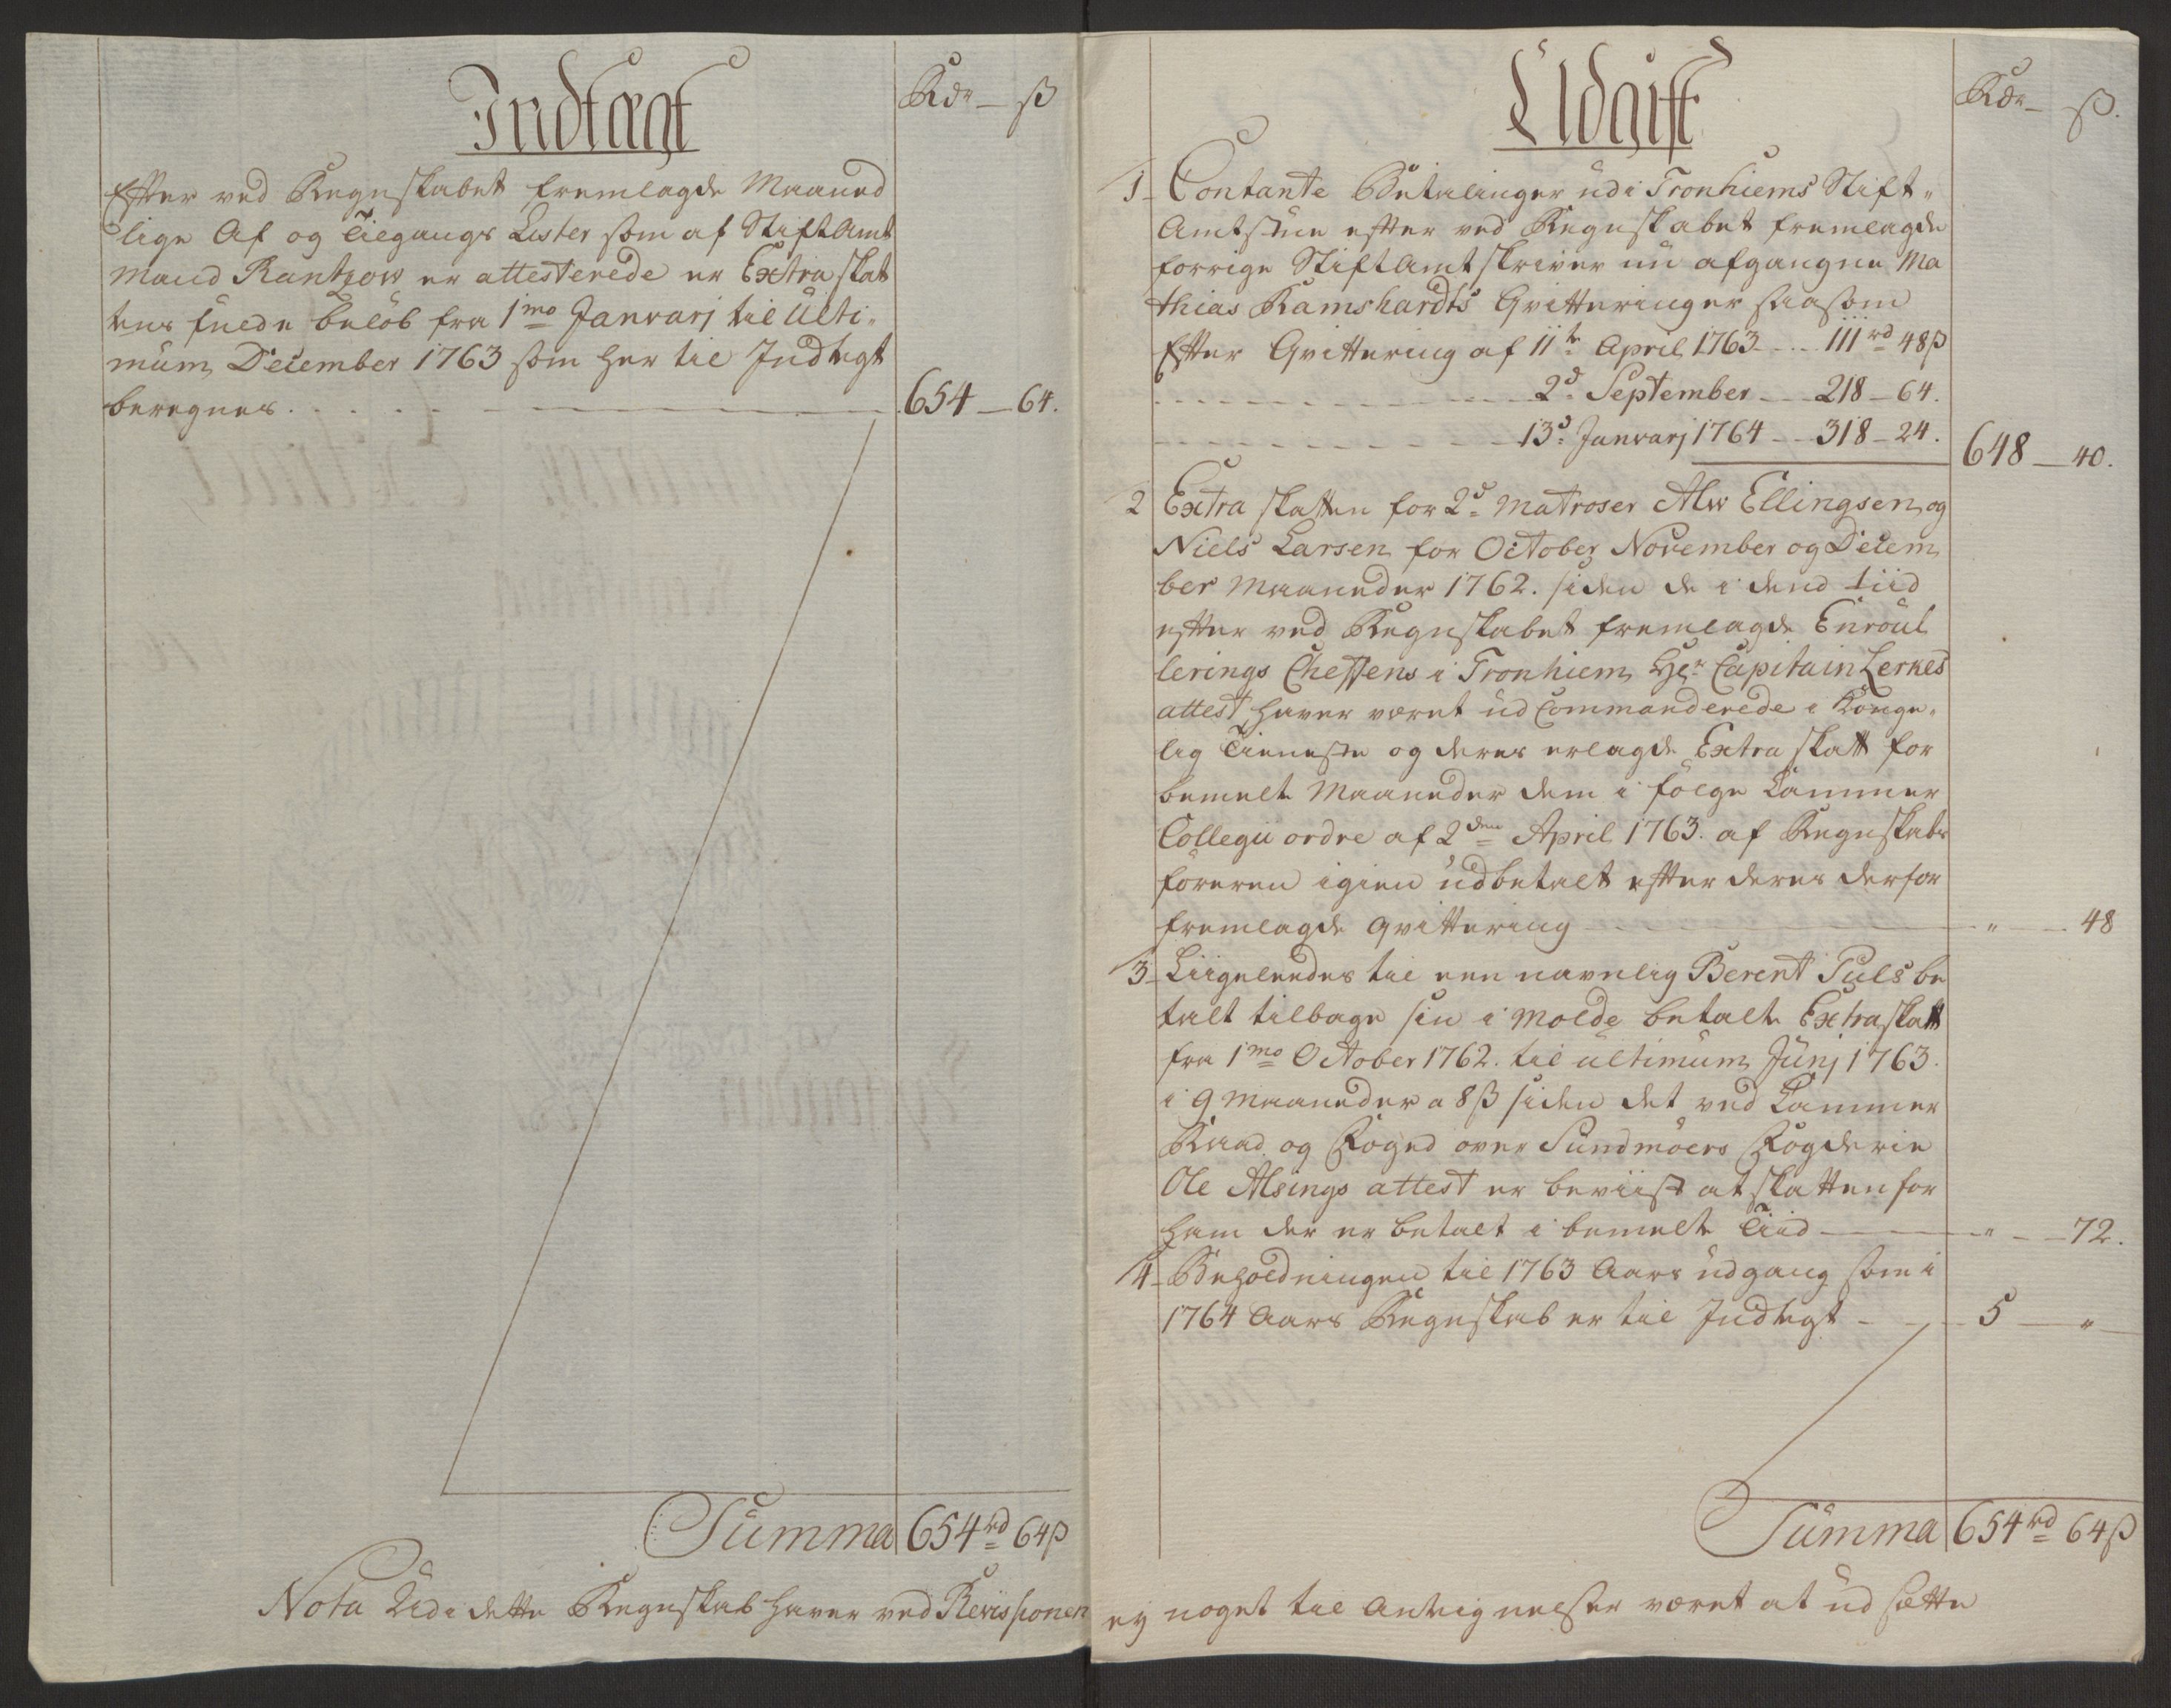 Indtægt
Rdr — ß
Efter ved Regnskabet fremlagde Maaned
lige Af og Tilgangs Lister som af Stiftamt
mand Rantzow er attesterede er Extra skat
tens fulde beløb fra 1mo Januarj til Ulti-
mum December 1763 som her til Indtegt
beregnes . . . . 654 — 64.
Summa 654rd 64ß
Nota Udi dette Regnskab haver ved Revissionen
Udgift
Rdr — ß.
1 Contante Betalinger udi Tronhiems Stift-
Amtstue efter ved Regnskabet fremlagde
forrige Stiftamtskriver nu afgangne Ma
thias Ramshardts Qvitteringer saasom
Efter Qvittering af 11te April 1763 — 111rd 48ß
2d September — 218 — 64.
13d Januarj 1764 — 318 — 24. 648 — 40.
2 Extra skatten for 2d Matroser Alw Ellingsen og
Niels Larsen for October November og Decem
ber Maaneder 1762. siden de i dend tiid
efter ved Regnskabet fremlagde Enroul
lerings Cheffens i Tronhiem Hr Capitain Lerkes
attest haver været ud Commanderede i Konge-
lig Tieneste og deres erlagde Extra skatt for
bemelte Maaneder dem i følge Cammer
Collegii ordre af 2den April 1763. af Regnskabs
føreren igien udbetalt efter deres derfor
fremlagde qvittering — " — 48
3 Liigeledes til een navnlig Berent Puls be
talt tilbage sin i Molde betalte Extraskatt
fra 1mo October 1762. til ultimum Junj 1763.
i 9 Maaneder a 8ß siden det ved Cammer
Raad og Foged over Sundmøers Fogderie
Ole Alsings attest er beviist at skatten for
ham der er betalt i bemelte Tiid — " — 72.
4 Beholdningen til 1763 Aars udgang som i
1764 Aars Regnskab er til Indtegt — 5 — "
Summa 654rd 64ß
ej noget til Antegnelser været at udsætte